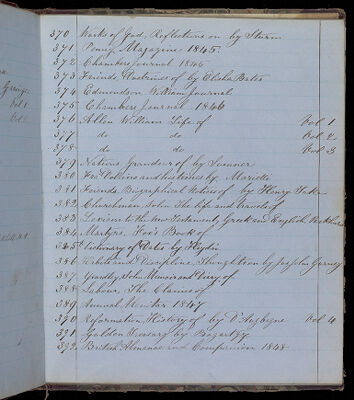 370 Works of God, Reflections on by Sturm
371 Penny Magazine 1845
372 Chambers Journal 1845
373 Friends Doctrines of by Elisha Bates
374 Edmundson William Journal
375 Chambers Journal 1846
376 Allen William Life of Vol 1
377 do do Vol 2
378 do do Vol 3
379 Nations, Grandeur of by Sumner
380 Fox Calvins and by
381 Friends Biographical Notices of by Henry Tuke
382 Churchman John The life and travels of
383 Lexicon to the New Testament, Greek and English Parkhurst
384 Martyrs, Fox's Book of
385 Dictionary of Dates by Haydn
386 Habits and Discipline, Thoughts on by Joseph Gurney
387 Yeardley John Memoir and Diary of
388 Labour, The Claims of
389 Annual Monitor 1847
390 Reformation History of by D'Aubigne Vol 4
391 Golden Treasury by Bogatzky
392 British Almanac and Companion 1848
Vol 1